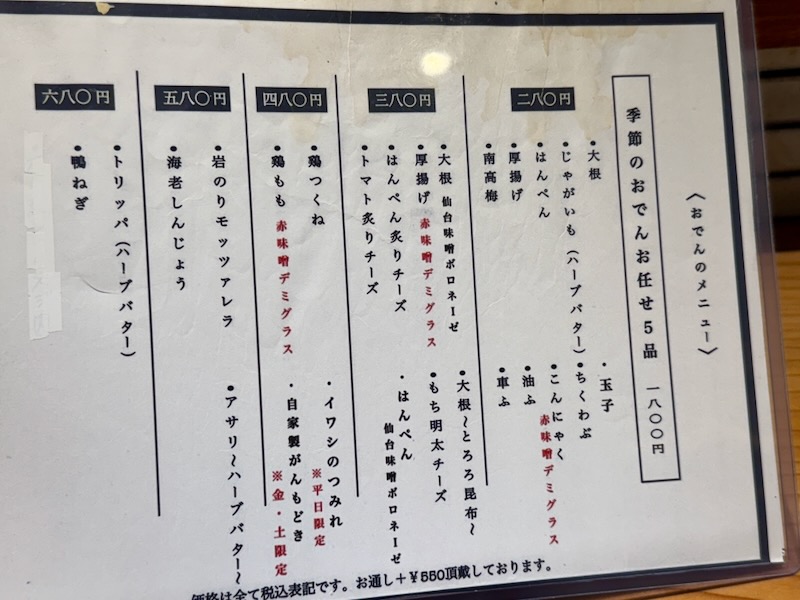 〈おでんのメニュー〉
季節のおでんお任せ5品 一八〇〇円
二八〇円
・大根
・玉子
・じゃがいも（ハーブバター）
・ちくわぶ
・はんぺん
・こんにゃく 赤味噌デミグラス
・厚揚げ
・油ふ
・南高梅
・車ふ
三八〇円
・大根 仙台味噌ボロネーゼ
・大根～とろろ昆布～
・厚揚げ 赤味噌デミグラス
・もち明太チーズ
・はんぺん炙りチーズ
・はんぺん 仙台味噌ボロネーゼ
・トマト炙りチーズ
四八〇円
・鶏つくね
・イワシのつみれ ※平日限定
・鶏もも 赤味噌デミグラス
・自家製がんもどき ※金・土限定
五八〇円
・岩のりモッツァレラ
・アサリ～ハーブバター～
・海老しんじょう
六八〇円
・トリッパ（ハーブバター）
・鴨ねぎ
価格は全て税込表記です。お通し＋¥550頂戴しております。